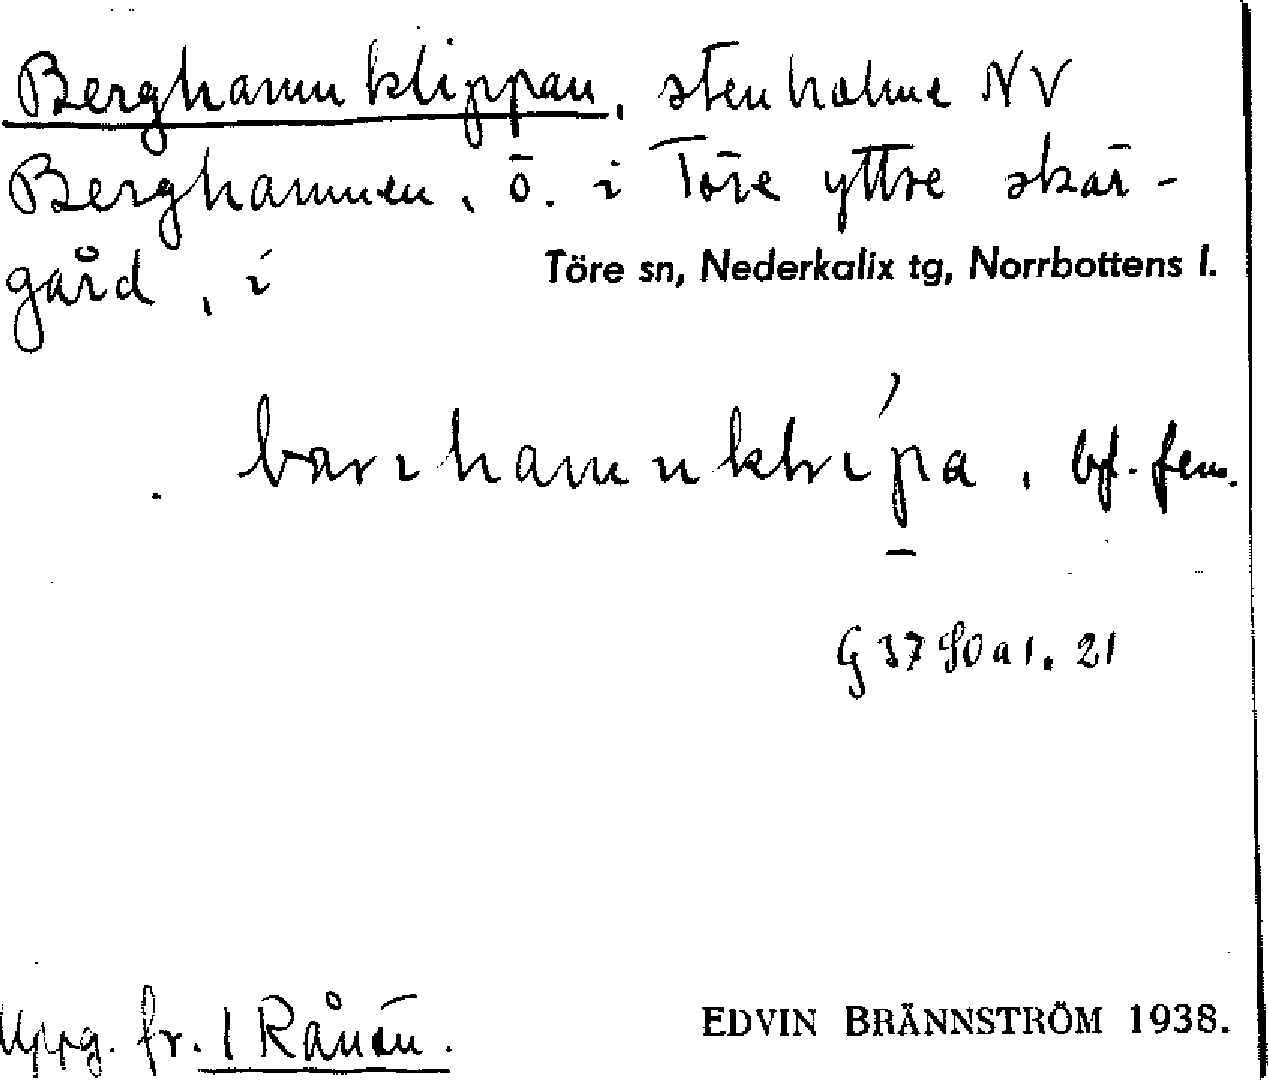 Berghamnklippan, stenholme NV
Berghamnen, ö. i Töre yttre skär-
gård, i Töre sn, Nederkalix tg, Norrbottens l.
bf. fem.
G 37 90 a 1. 21
Uppg. fr. 1 Rånön.
EDVIN BRÄNNSTRÖM 1938.